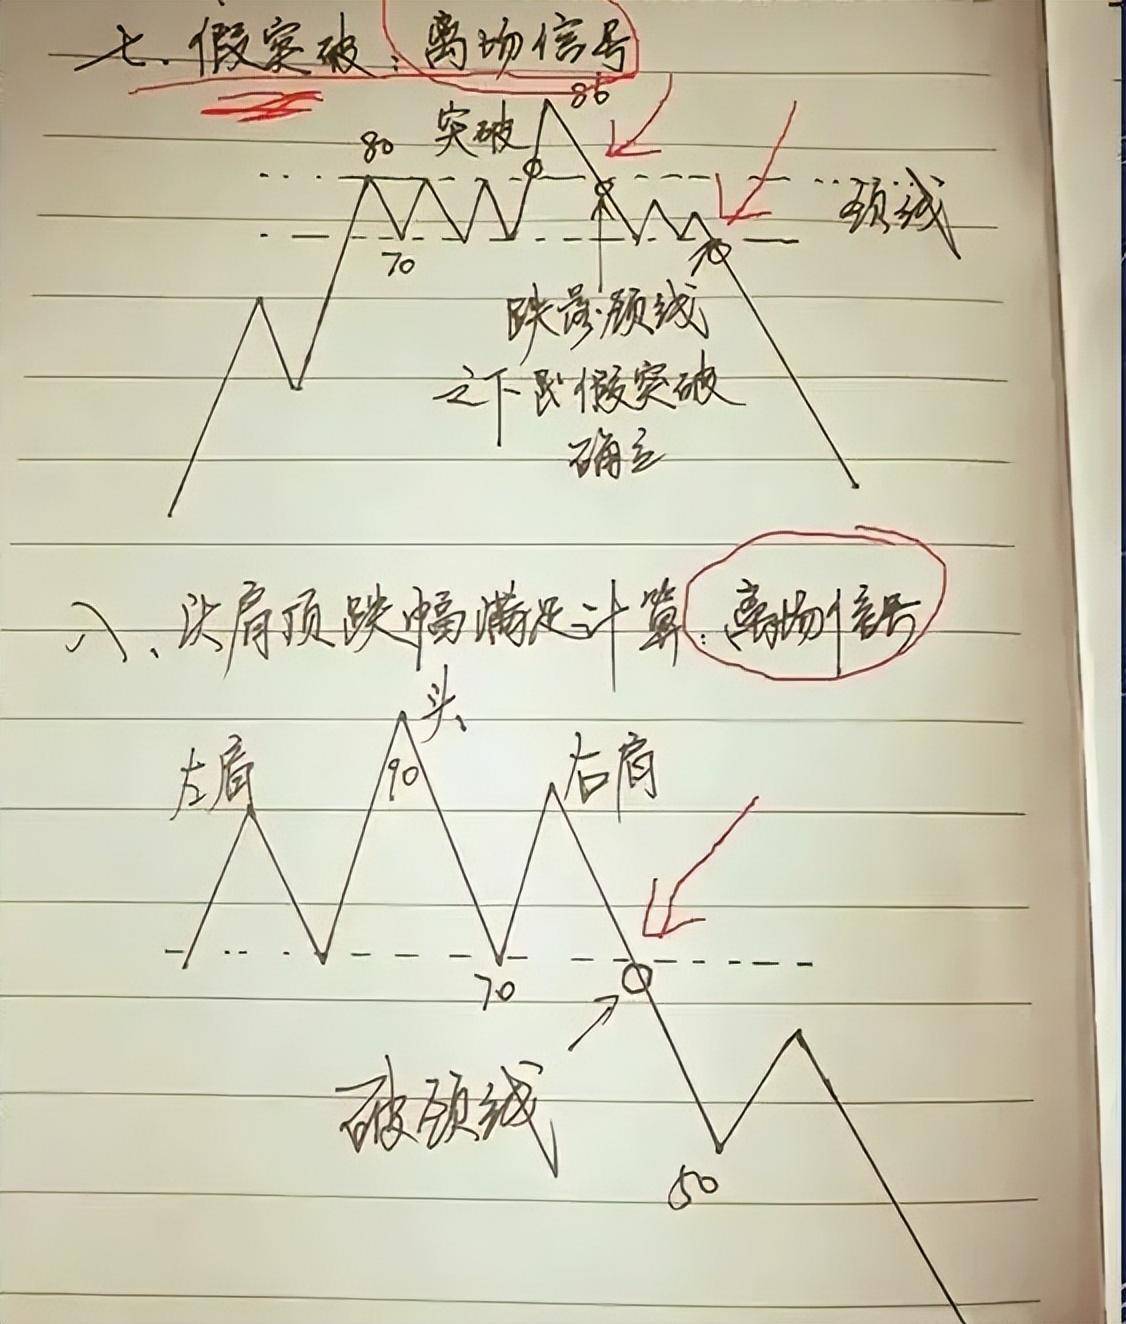 七、假突破：离场信号
86
80 突破
颈线
70
70
跌落颈线
之下即假突破
确立
八、头肩顶跌幅满足计算：离场信号
头
左肩
90
右肩
70
破颈线
50